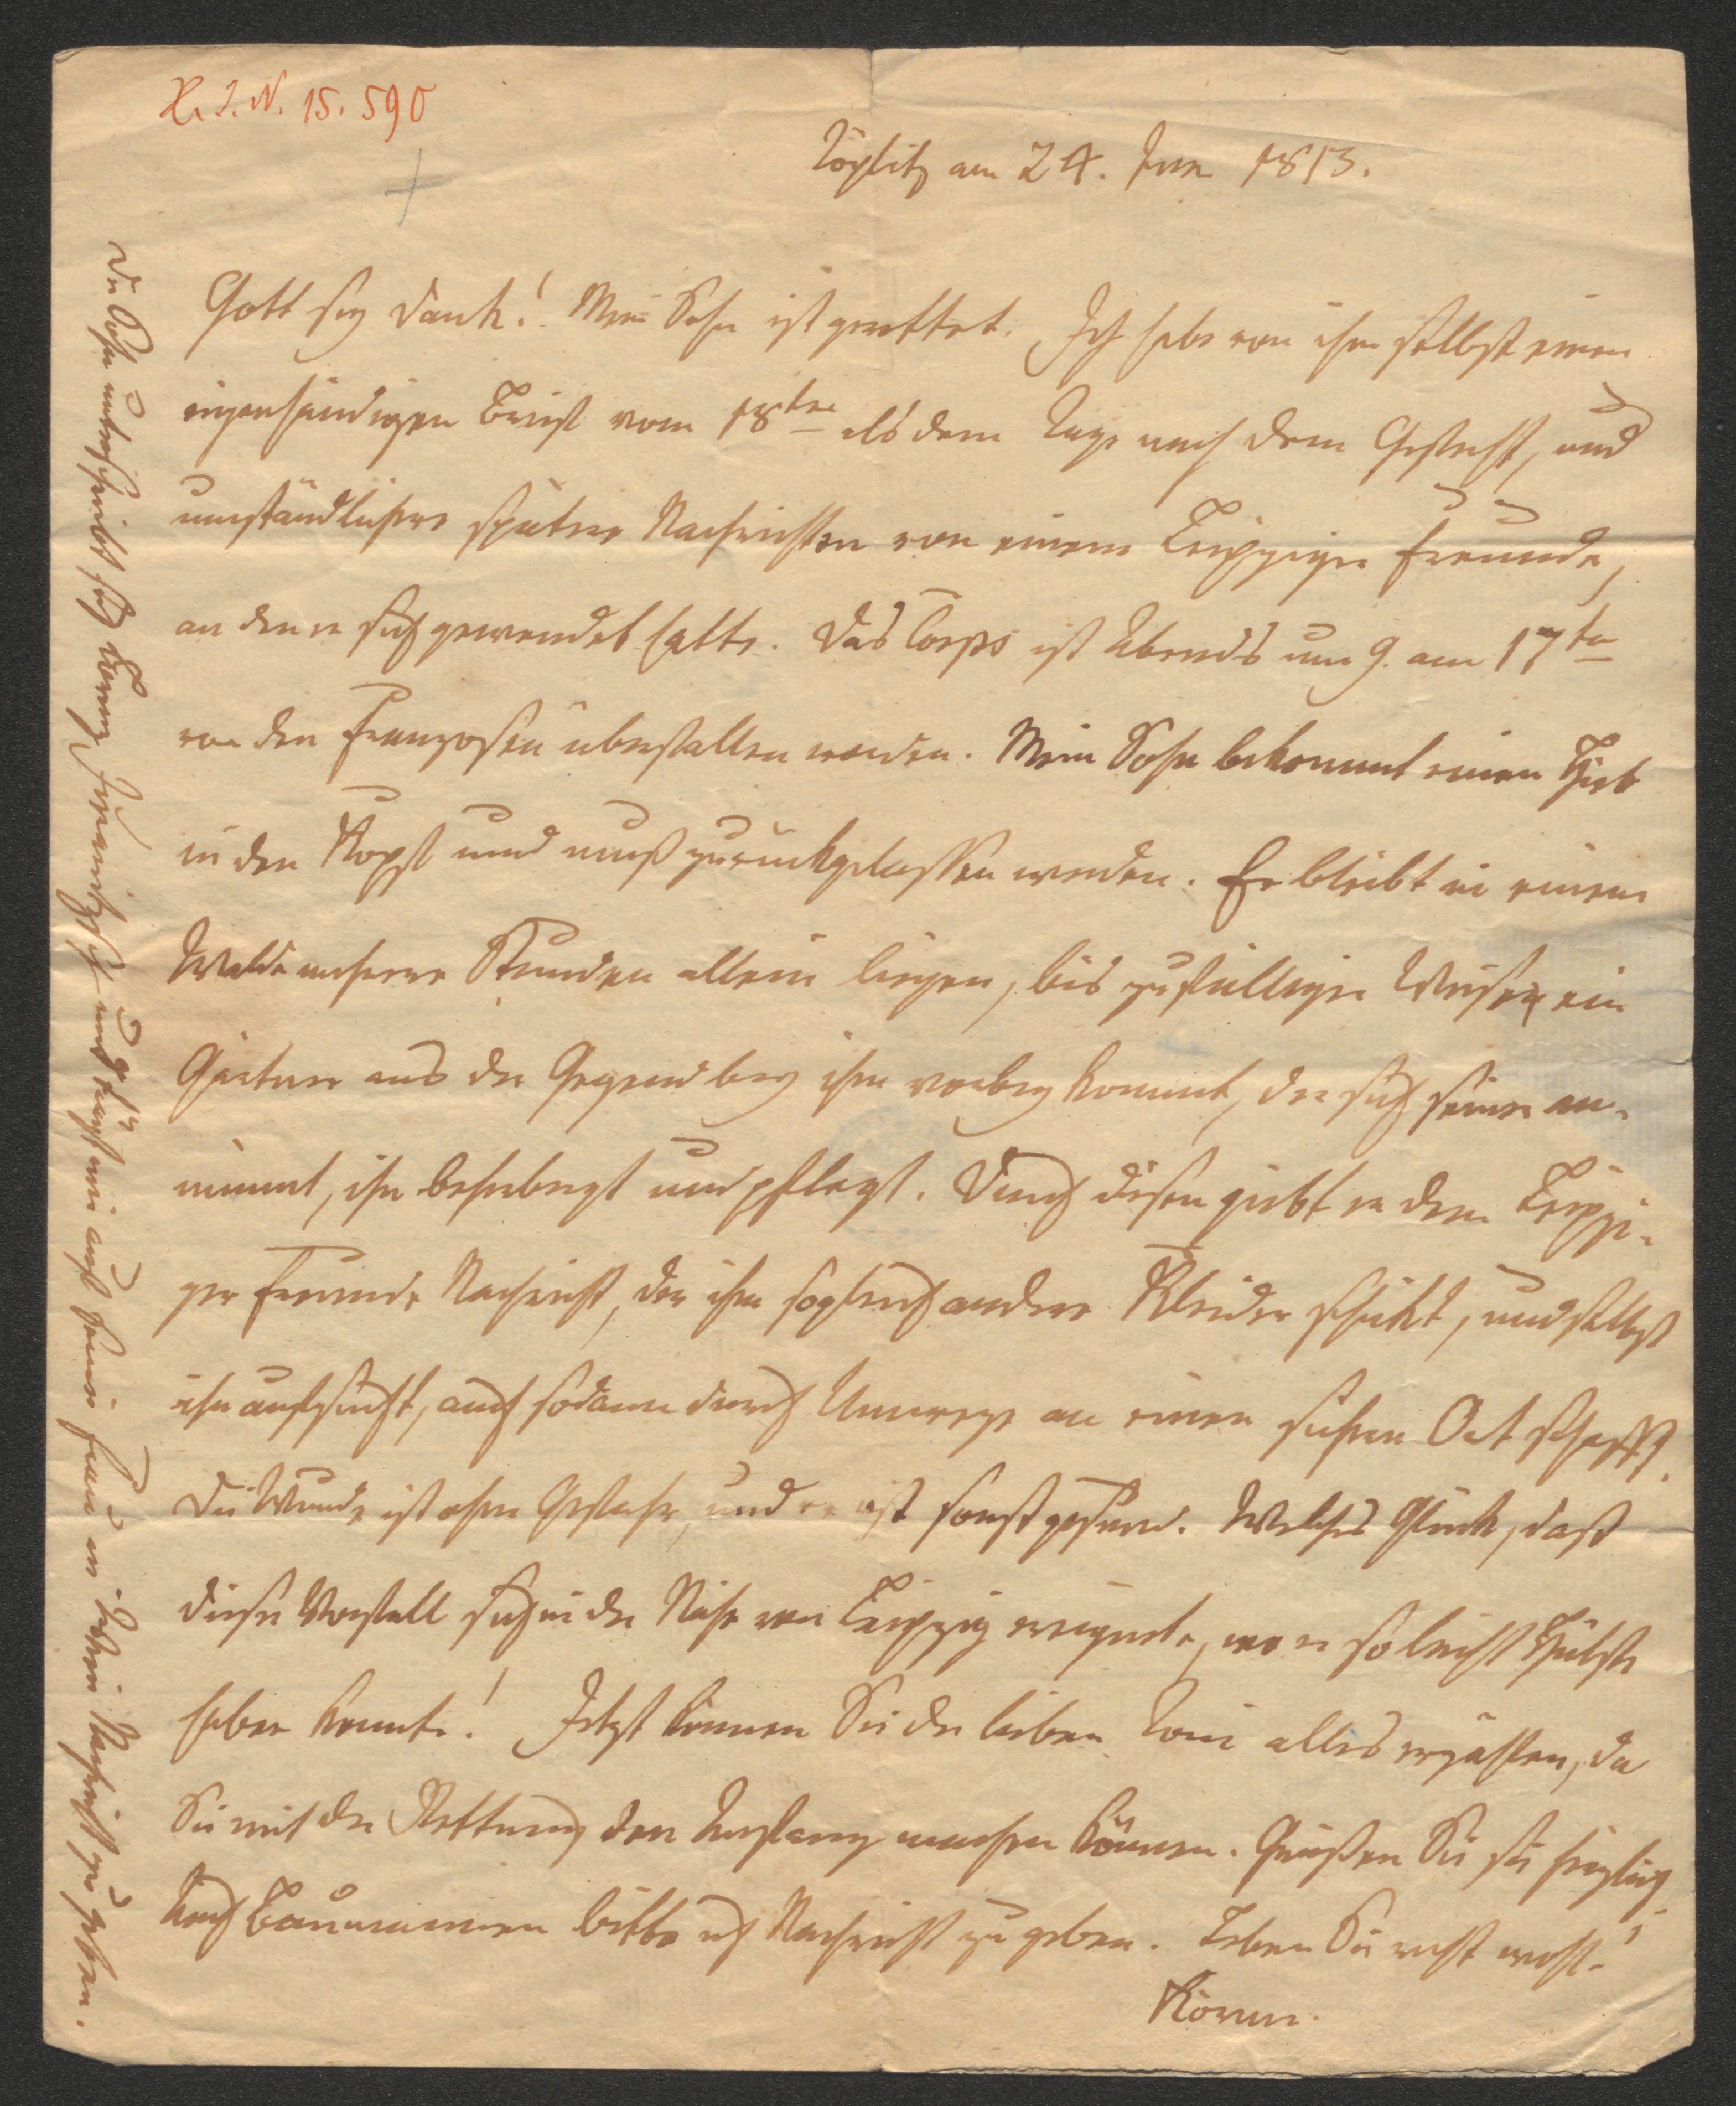 H. I. N. 15.590
Töplitz am 24. Jun 1813.
Gott sey Dank! Mein Sohn ist gerettet. Ich habe von ihm selbst einen
eigenhändigen Brief vom 18ten als dem Tage nach dem Gefecht, und
umständlichere spätere Nachrichten von einem Leipziger Freunde,
an den er sich gewendet hatte. Das Corps ist Abends um 9. am 17ten
von den Franzosen überfallen worden. Mein Sohn bekommt einen Hieb
in den Kopf und muß zurückgelassen werden. Er bleibt in einem
Walde mehrere Stunden allein liegen, bis zufälliger Weise ein
Gärtner aus der Gegend bey ihm vorbey kommt, der sich seiner an-
nimmt, ihn beherbergt und pflegt. Durch diesen giebt er dem Leipzi-
ger Freunde Nachricht, der ihm sogleich andere Kleider schickt, und selbst
ihn aufsucht, auch sodann durch Umwege an einen sichern Ort schafft.
Die Wunde ist ohne Gefahr, und er ist sonst gesund. Welches Glück, daß
dieser Vorfall sich in der Nähe von Leipzig ereignete, wo er so leicht Hülfe
haben konnte! Jetzt können Sie der lieben Toni alles erzählen, da
Sie mit der Rettung den Anfang machen können. Grüßen Sie sie herzlich
Auch bitte ich Nachricht zu geben. Leben Sie recht wohl!
Körner.
Der Sohn unterschreibt sich und trägt mir auch seiner Frau in Wien Nachricht zu geben.